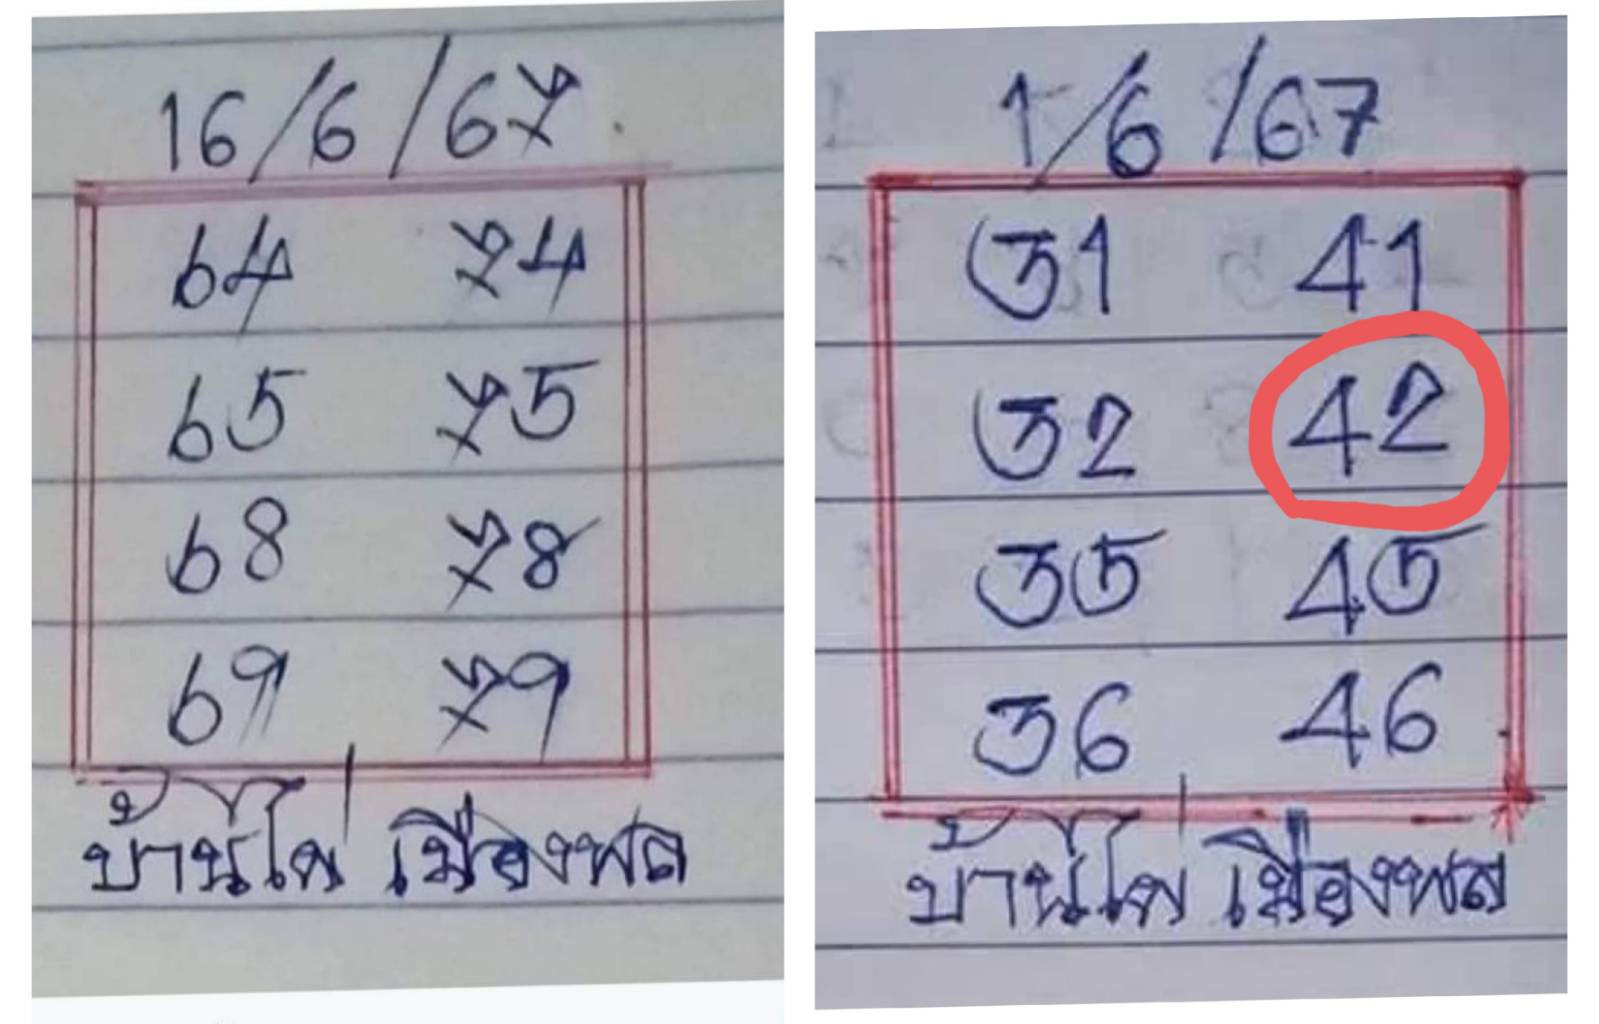 16/6/67
64 74
65 75
68 78
69 79
บ้านไผ่ เมืองพล
1/6/67
31 41
32 42
35 45
36 46
บ้านไผ่ เมืองพล